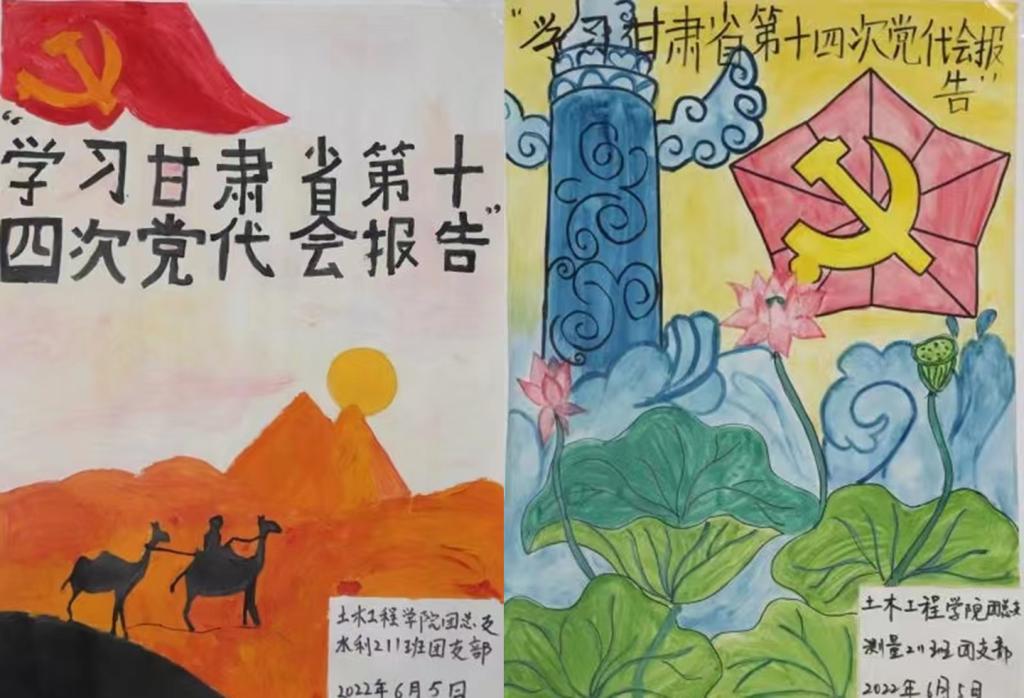 “学习甘肃省第十
四次党代会报告”
土木工程学院团总支
水利211班团支部
2022年6月5日
“学习甘肃省第十四次党代会报
告”
土木工程学院团总支
测量211班团支部
2022年6月5日